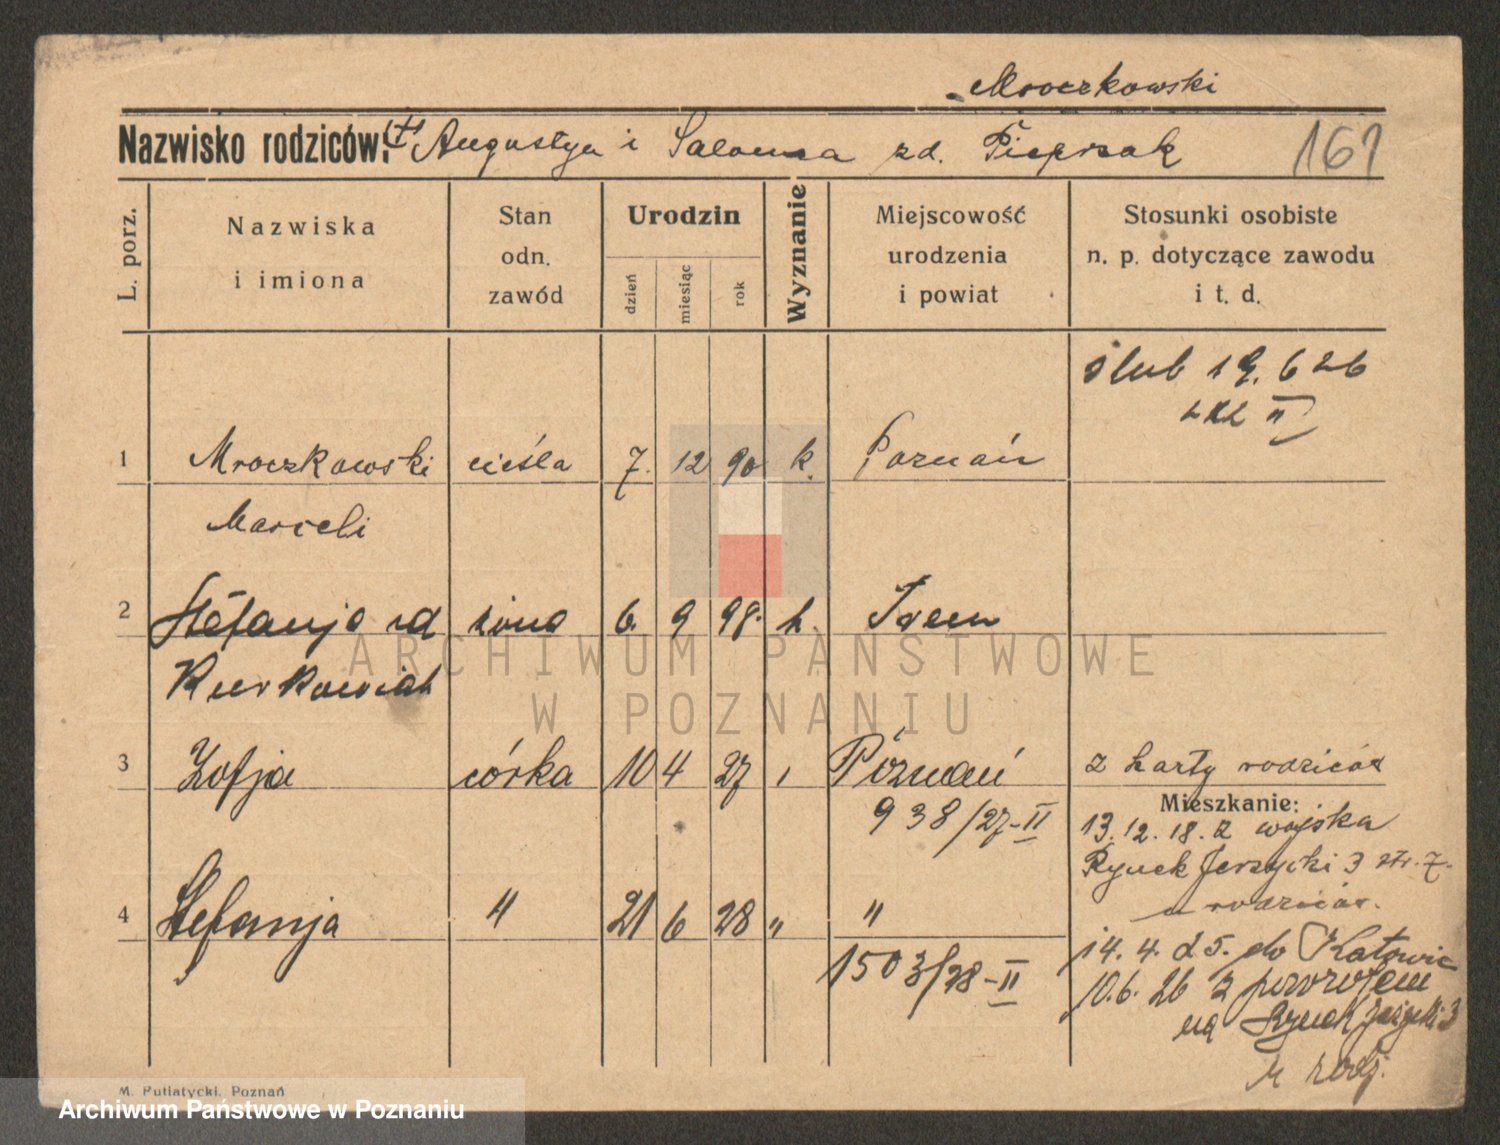 Mroczkowski
Nazwisko rodziców: (+) Augustyn i Salomea zd. Pieprzak 161
L. porz.
Nazwiska i imiona
Stan odn. zawód
Urodzin
dzień
miesiąc
rok
Wyznanie
Miejscowość urodzenia i powiat
Stosunki osobiste n. p. dotyczące zawodu i t. d.
ślub 19. 6 26
II
1 Mroczkowski cieśla 7. 12 90 k. Poznań
Marceli
2 Stefanja zd żona 6. 9 98. k.
3 Zofja córka 10 4 27 Poznań z karty rodziców
938/27-II
Mieszkanie:
13. 12. 18. z wojska
Rynek Jerzycki 3 ptr. 7.
u rodziców.
4 Stefanja " 21 6 28 " "
1503/28-II
14. 4. 25. do Katowic
10. 6. 26 z powrotem
na Rynek Jeżycki 3
u rodz.
M. Putiatycki, Poznań
ARCHIWUM PAŃSTWOWE
W POZNANIU
Archiwum Państwowe w Poznaniu